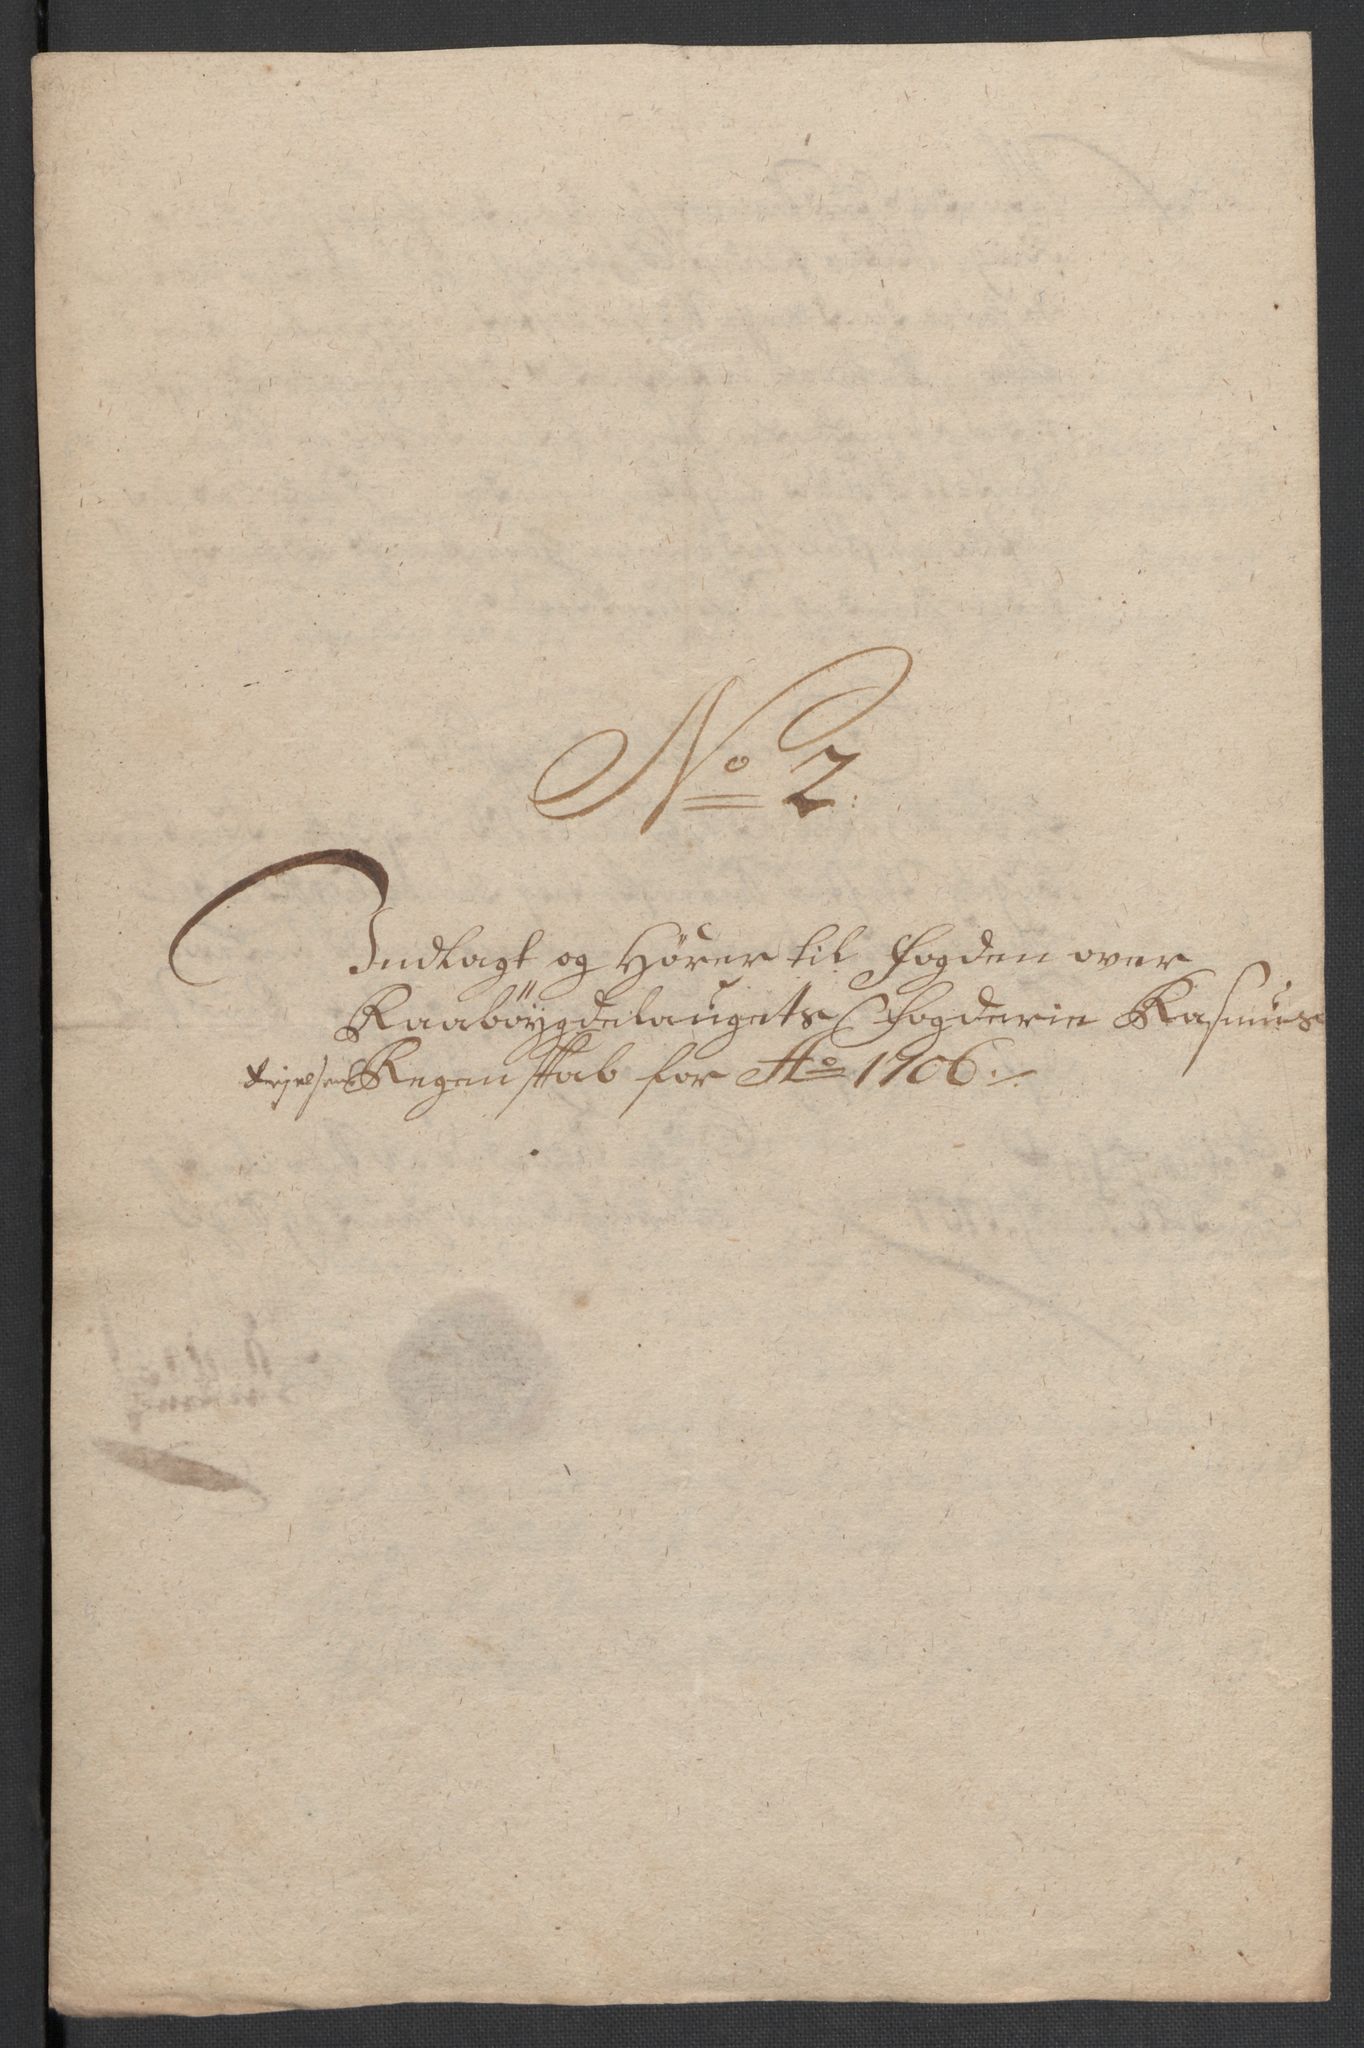 No 2
Indlagt og Hörer til fogden over
Raaböygdelaugets fogderie Rasmus
Regenskab for Ao 1706.